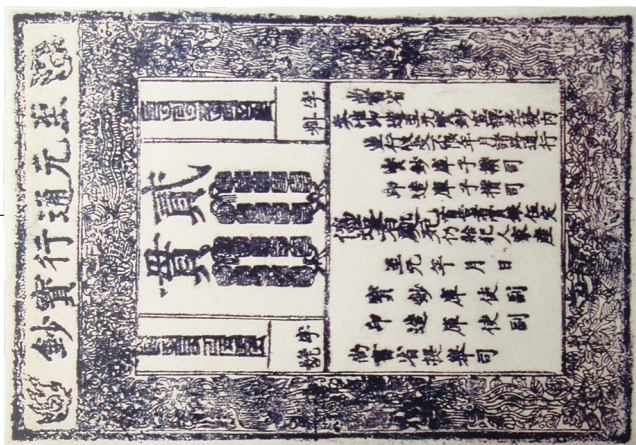 至元通行寶鈔
字料
貳貫
字號
尚書省
奏准印造至元寶鈔宣課差役內
並行收受不限年月諸路通行
寶鈔庫子攢司
印造庫子攢司
偽造者處死
首告者賞銀伍定
仍給犯人家產
至元 年 月 日
寶鈔庫使副
印造庫使副
尚書省提舉司